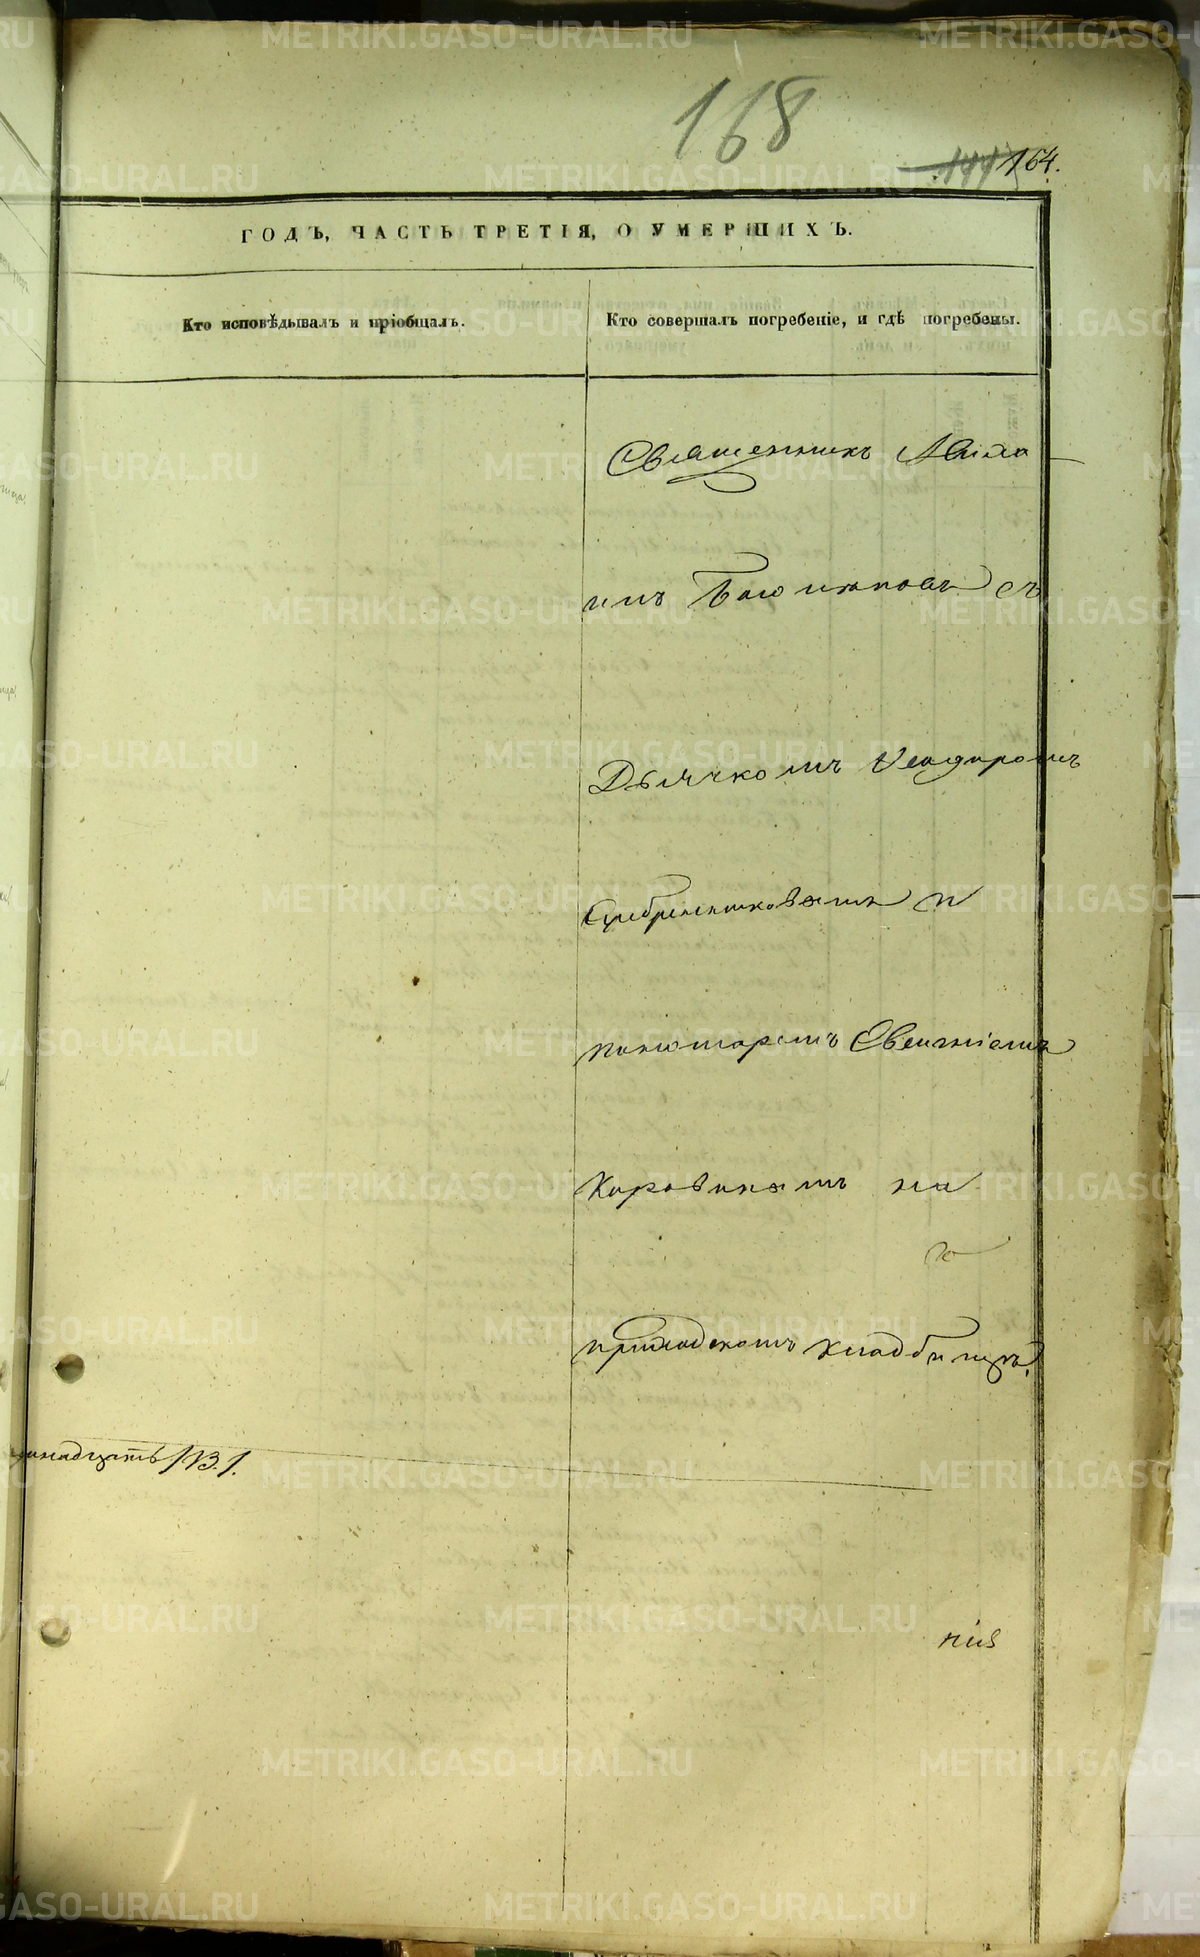 168
164.
ГОДЪ, ЧАСТЬ ТРЕТІЯ, О УМЕРШИХЪ.
Кто исповѣдывалъ и пріобщалъ.
Кто совершалъ погребеніе, и гдѣ погребены.
Священникъ
съ
Дьячкомъ Исидоромъ
Серебренниковымъ и
пономаремъ Евгеніемъ
Коровинымъ на
приходскомъ кладбищѣ.
/13./.
METRIKI.GASO-URAL.RU